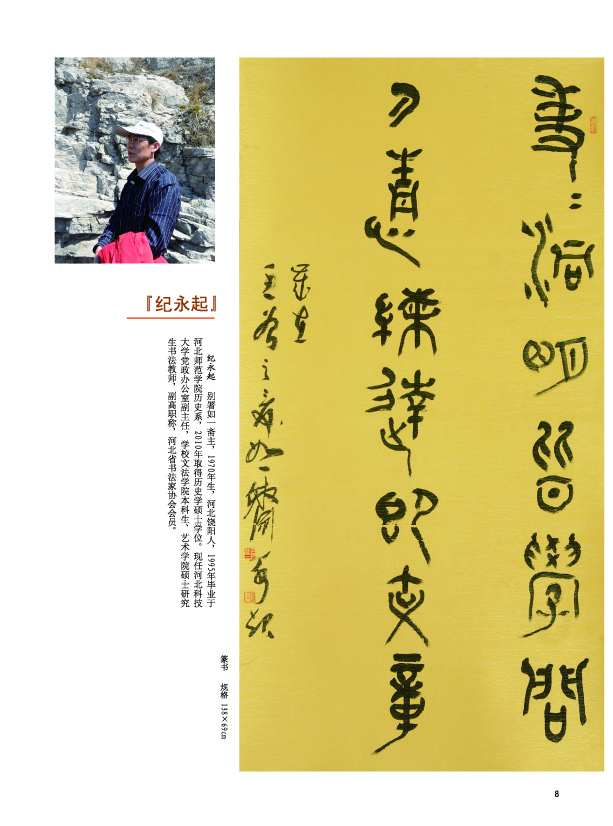 事〻洞明皆學問
人情練達即文章
歲在
『纪永起』
纪永起　别署如一斋主，1970年生，河北饶阳人，1995年毕业于
河北师范学院历史系，2010年取得历史学硕士学位。现任河北科技
大学党政办公室副主任，学校文法学院本科生、艺术学院硕士研究
生书法教师，副高职称，河北省书法家协会会员。
篆书　规格 138×69cm
8